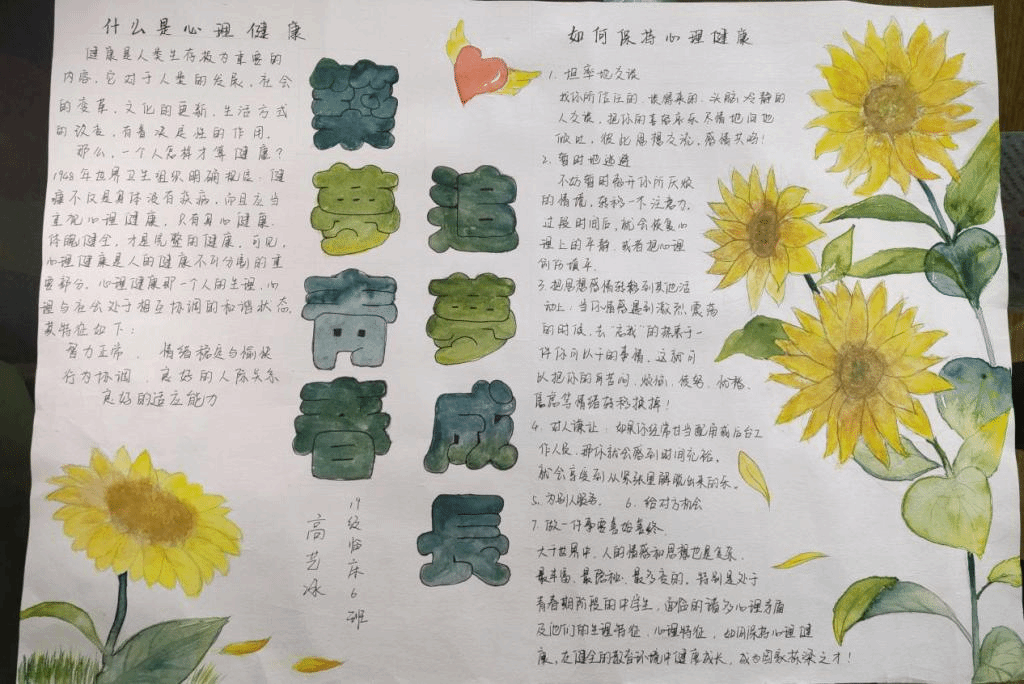 什么是心理健康
健康是人类生存极为重要的
内容，它对于人类的发展，社会
的变革，文化的更新，生活方式
的改变，有着决定性的作用。
那么，一个人怎样才算健康？
1948年世界卫生组织明确规定：健
康不仅是身体没有疾病，而且应当
重视心理健康，只有身心健康、
体魄健全，才是完整的健康。可见，
心理健康是人的健康不可分割的重
要部分。心理健康那一个人的生理、心
理与社会处于相互协调的和谐状态，
其特征如下：
智力正常、情绪稳定与愉快
行为协调、良好的人际关系
良好的适应能力
梦青春
追梦成长
19级临床6班
高艺冰
如何保持心理健康
1. 坦率地交谈
找你所信任的、谈得来的、头脑冷静的
人交谈，把你的喜怒哀乐不情地向他
倾吐，彼此思想交流，感情共鸣！
2. 暂时地逃避
不妨暂时离开你所厌烦
的情境，转移一下注意力，
过段时间后，就会恢复心
理上的平静，或者把心理
创伤填平。
3. 把思想感情转移到其他活
动上：当你情感遇到激烈震荡
的时候，去“忘我”的采来干一
件你可以干的事情，这就可
以把你的苦闷、烦恼、
等情绪转移掉！
4. 对人谦让：如果你经常甘当配角或后台工
作人员，那你就会感到时间充裕，
就会享受到从紧张里解脱出来的乐。
5. 为别人服务。 6. 给对方机会
7. 做一件事要善始善终
大千世界中，人的情感和思想也是复杂、
最丰富、最隐秘、最多变的，特别是处于
青春期阶段的中学生，面临的诸多心理矛盾
及他们的生理特征、心理特征，如何保持心理健
康，在健全的教育环境中健康成长，成为国家栋梁之才！